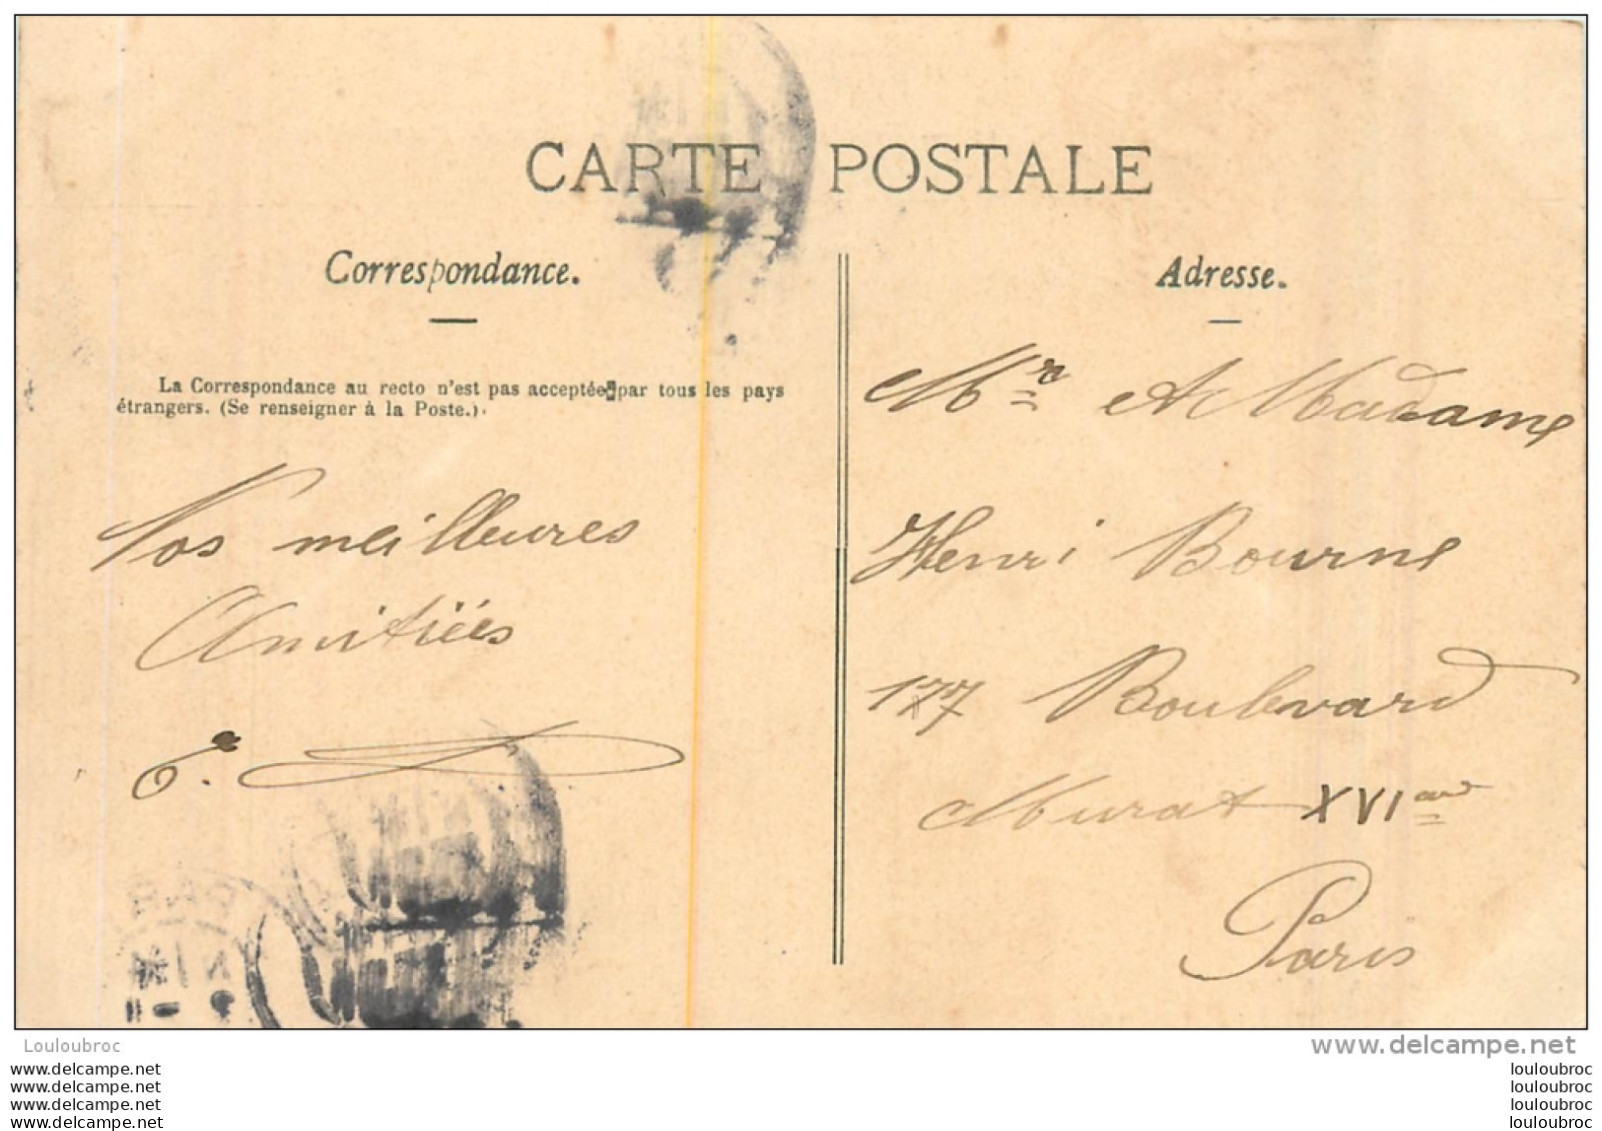 CARTE POSTALE
Correspondance.
La Correspondance au recto n'est pas acceptée par tous les pays
étrangers. (Se renseigner à la Poste.)
Nos meilleures
Amitiées
Adresse.
Mr et Madame
Henri Bourne
177 Boulevard
Murat XVI ard
Paris
Louloubroc
www.delcampe.net
www.delcampe.net
www.delcampe.net
www.delcampe.net
www.delcampe.net
louloubroc
louloubroc
louloubroc
louloubroc